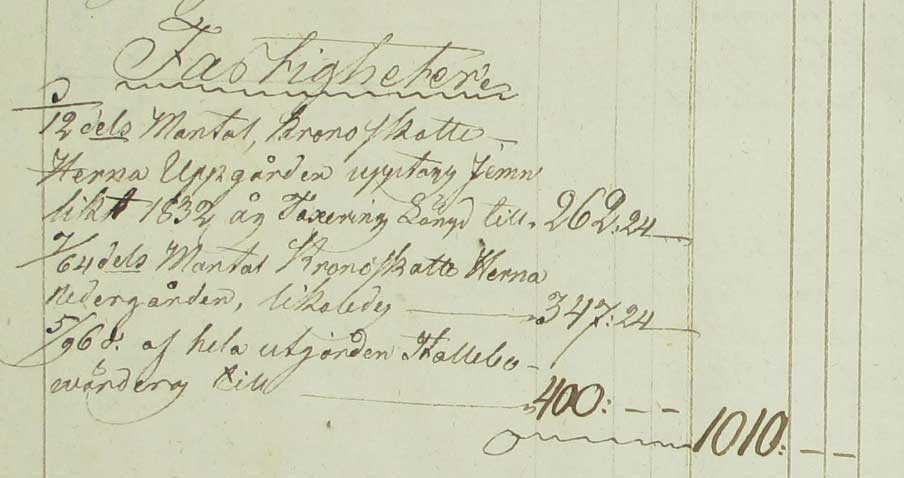 Fastigheter
5/12 dels Mantal, Kronoskatte
Herna Uppgården upptag Jemn
likt 1832 års Taxering Längd till 262:24
7/64 dels Mantal Kronoskatte Herna
Nedergården, likaledes 347:24
5/96 d. af hela utjorden Hallebo
värderas till 400:--
1010:--